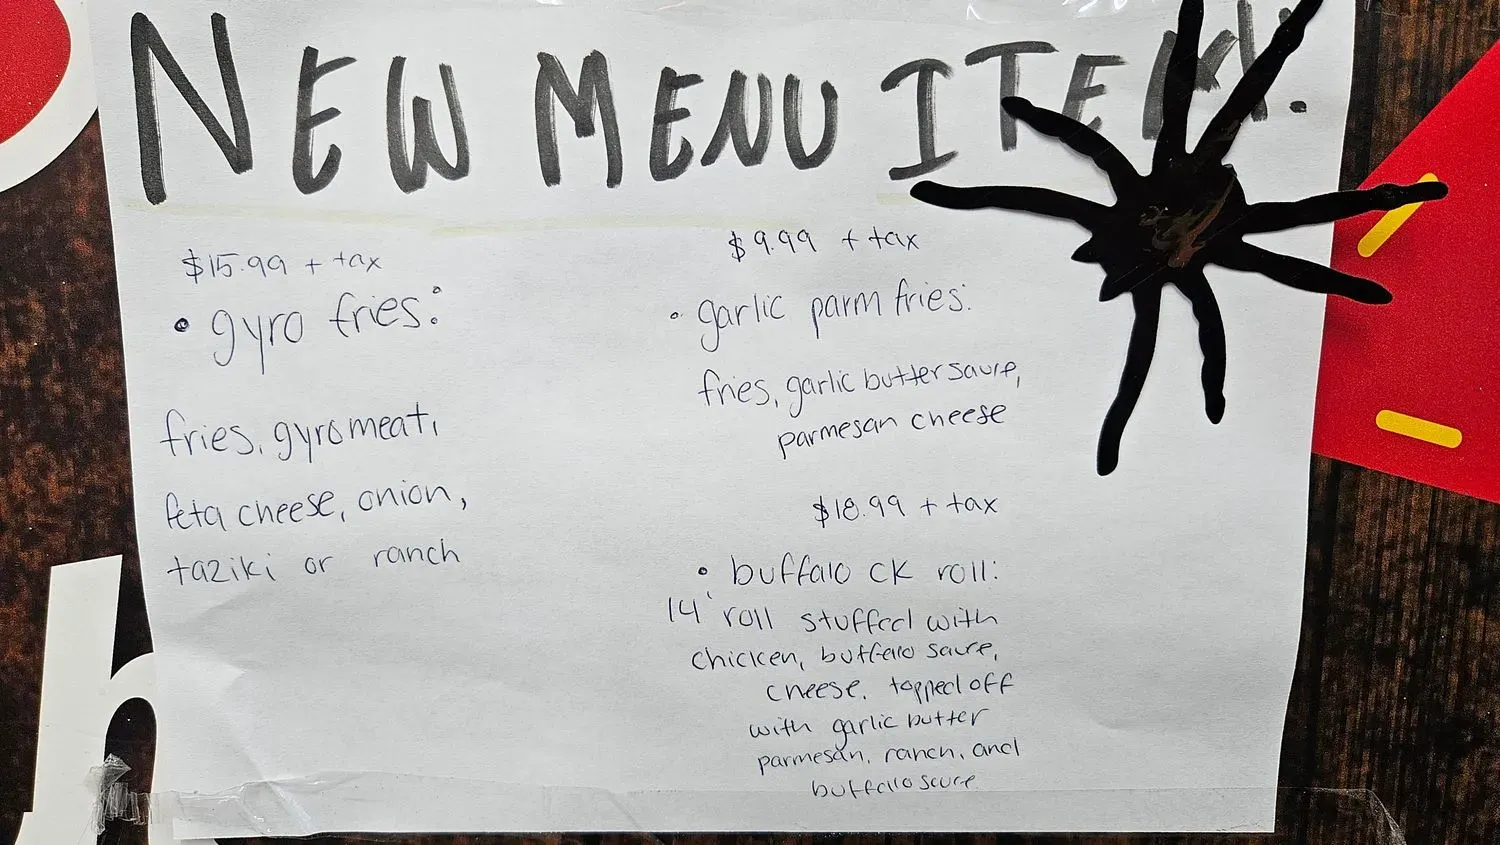 NEW MENU ITEM!
$15.99 + tax
• gyro fries:
fries, gyro meat,
feta cheese, onion,
taziki or ranch
$9.99 + tax
• garlic parm fries:
fries, garlic butter sauce,
parmesan cheese
$18.99 + tax
• buffalo ck roll:
14' roll stuffed with
chicken, buffalo sauce,
cheese. topped off
with garlic butter
parmesan, ranch, and
buffalo sauce
h